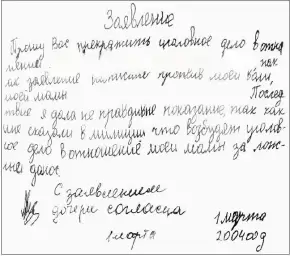 Заявление
Прошу Вас прекратить уголовное дело в отно
шение так
как заявление написано против моей
моей мамы Послед
ствие я дала не правдивые показание, так как
мне сказали в милиции что возбудят уголов-
ное дело в отношение моей мамы за лож-
ный донос.
С заявлением
дочери согласна
1 марта
1 марта
2004 год